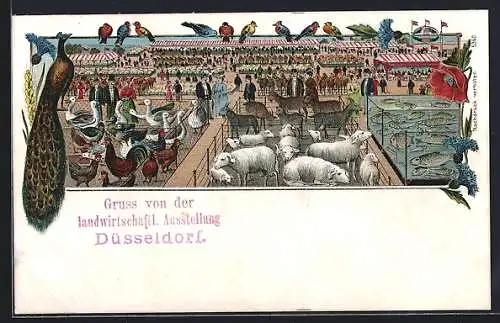 Gruss von der
landwirtschaftl. Ausstellung
Düsseldorf.